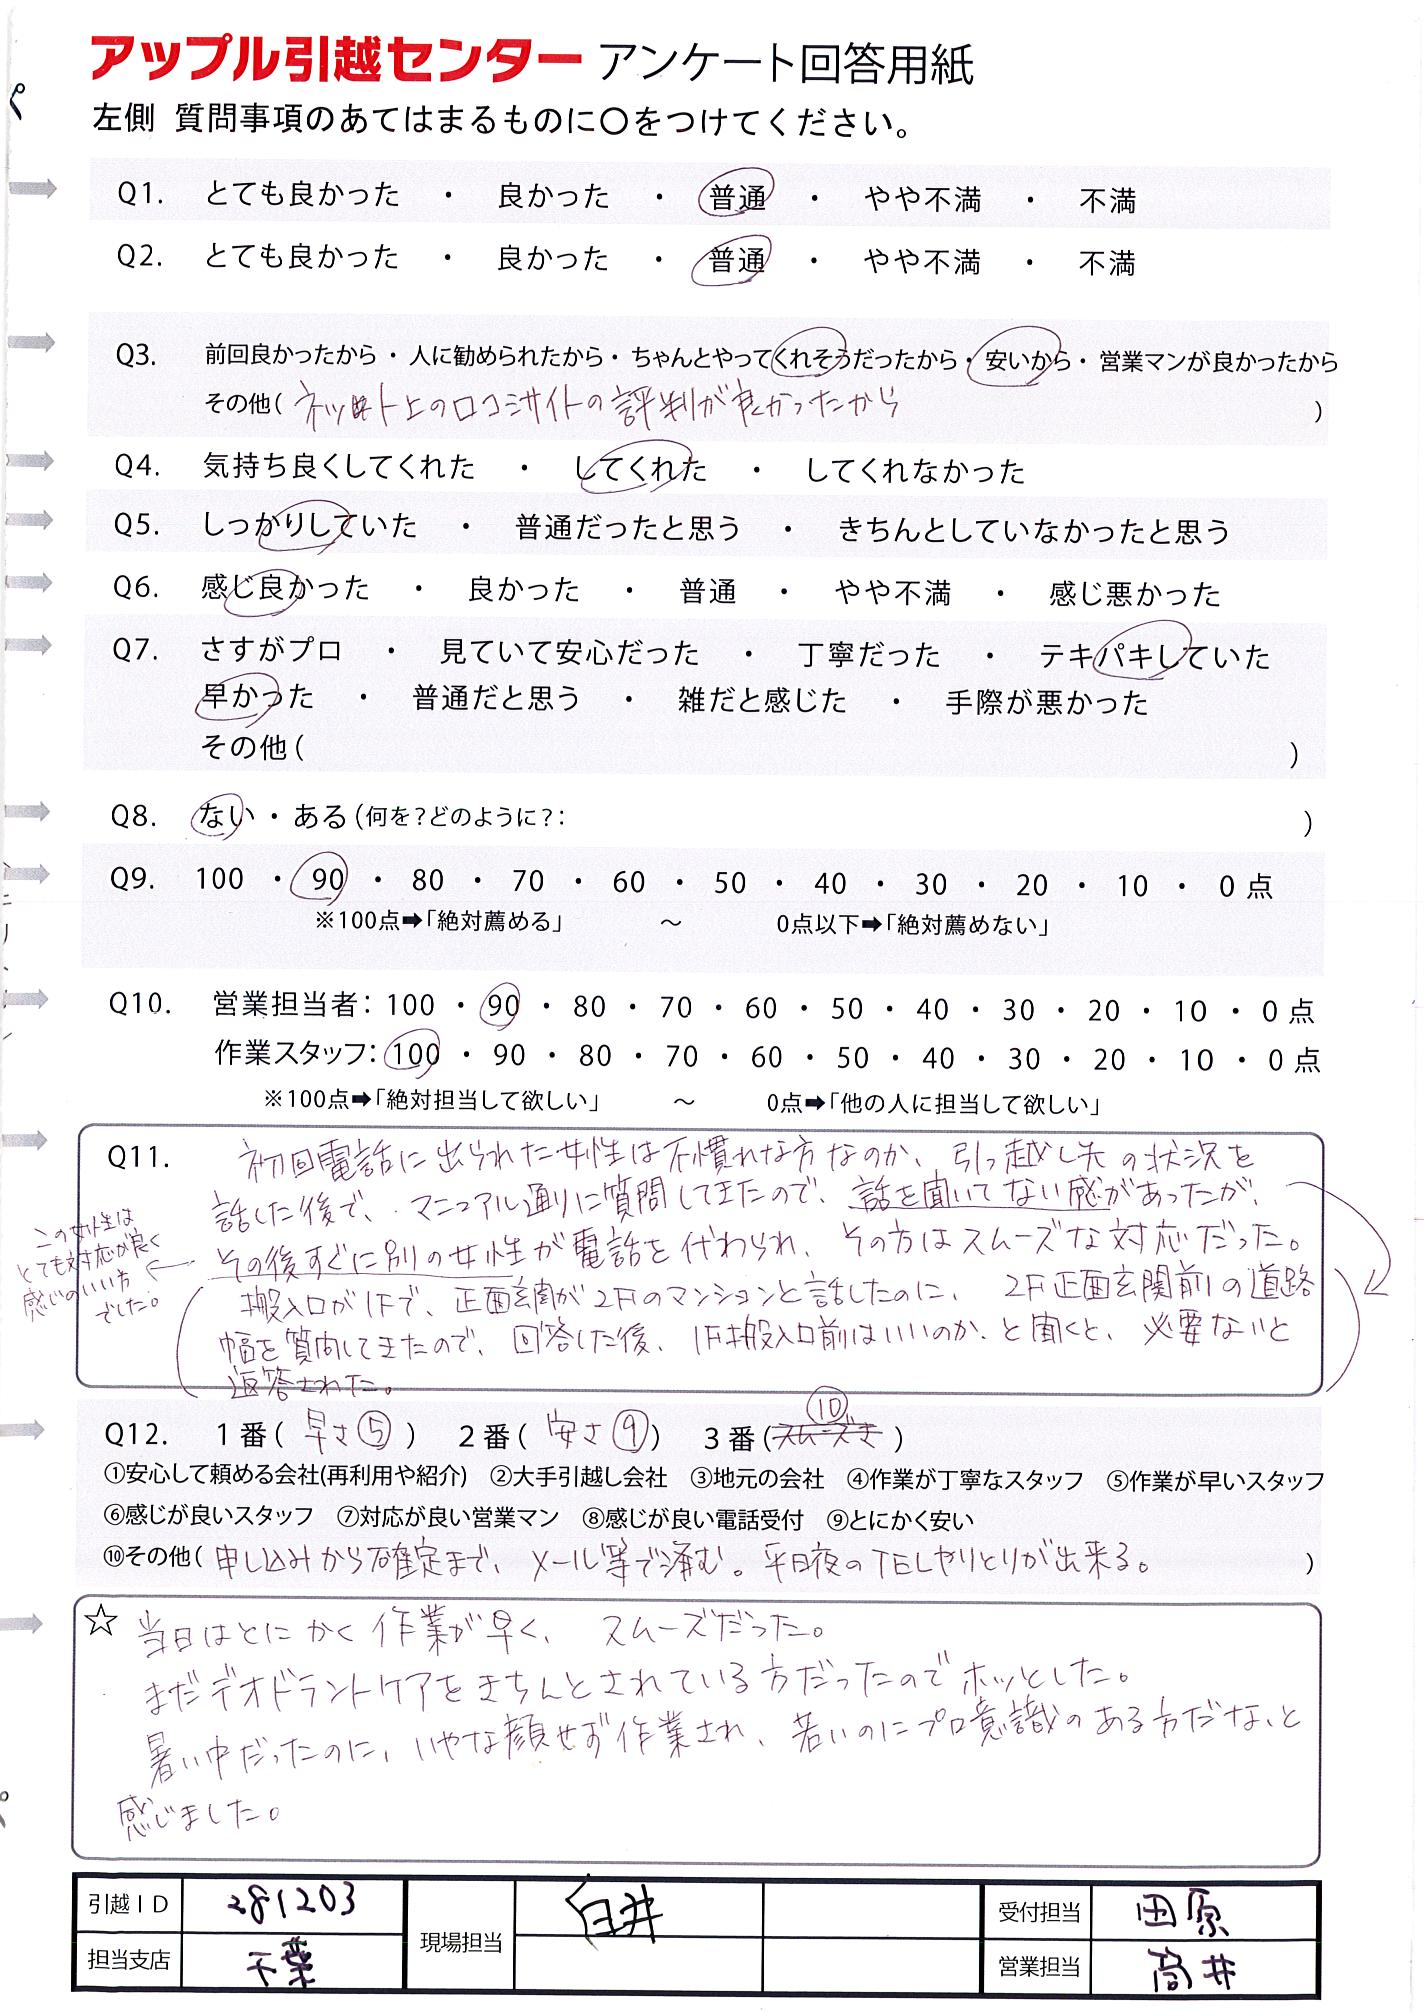 アップル引越センター アンケート回答用紙
左側 質問事項のあてはまるものに〇をつけてください。
Q1. とても良かった ・ 良かった ・ 普通 ・ やや不満 ・ 不満
Q2. とても良かった ・ 良かった ・ 普通 ・ やや不満 ・ 不満
Q3. 前回良かったから・人に勧められたから・ちゃんとやってくれそうだったから・安いから・営業マンが良かったから
その他( ネット上の口コミサイトの評判が良かったから )
Q4. 気持ち良くしてくれた ・ してくれた ・ してくれなかった
Q5. しっかりしていた ・ 普通だったと思う ・ きちんとしていなかったと思う
Q6. 感じ良かった ・ 良かった ・ 普通 ・ やや不満 ・ 感じ悪かった
Q7. さすがプロ ・ 見ていて安心だった ・ 丁寧だった ・ テキパキしていた
早かった ・ 普通だと思う ・ 雑だと感じた ・ 手際が悪かった
その他( )
Q8. ない・ある(何を?どのように?: )
Q9. 100 ・ 90 ・ 80 ・ 70 ・ 60 ・ 50 ・ 40 ・ 30 ・ 20 ・ 10 ・ 0 点
※100点➡「絶対薦める」 ～ 0点以下➡「絶対薦めない」
Q10. 営業担当者: 100 ・ 90 ・ 80 ・ 70 ・ 60 ・ 50 ・ 40 ・ 30 ・ 20 ・ 10 ・ 0 点
作業スタッフ: 100 ・ 90 ・ 80 ・ 70 ・ 60 ・ 50 ・ 40 ・ 30 ・ 20 ・ 10 ・ 0 点
※100点➡「絶対担当して欲しい」 ～ 0点➡「他の人に担当して欲しい」
Q11. 初回電話に出られた女性は不慣れな方なのか、引っ越し先の状況を
話した後で、マニュアル通りに質問してきたので、話を聞いてない感があったが、
その後すぐに別の女性が電話を代わられ、その方はスムーズな対応だった。
この女性は
とても対応が良く
感じのいい方
でした。
搬入口が1Fで、正面玄関が2Fのマンションと話したのに、2F正面玄関前の道路
幅を質問してきたので、回答した後、1F搬入口前はいいのか、と聞くと、必要ないと
返答された。
Q12. 1番( 早さ⑤ ) 2番( 安さ⑨ ) 3番( スムーズさ ⑩ )
①安心して頼める会社(再利用や紹介) ②大手引越し会社 ③地元の会社 ④作業が丁寧なスタッフ ⑤作業が早いスタッフ
⑥感じが良いスタッフ ⑦対応が良い営業マン ⑧感じが良い電話受付 ⑨とにかく安い
⑩その他( 申し込みから確定まで、メール等で済む。平日夜のTELやりとりが出来る。 )
☆ 当日はとにかく作業が早く、スムーズだった。
まだデオドラントケアをきちんとされている方だったのでホッとした。
暑い中だったのに、いやな顔せず作業され、若いのにプロ意識のある方だな、と
感じました。
引越ID 281203 現場担当 臼井 受付担当 田原
担当支店 千葉 営業担当 筒井